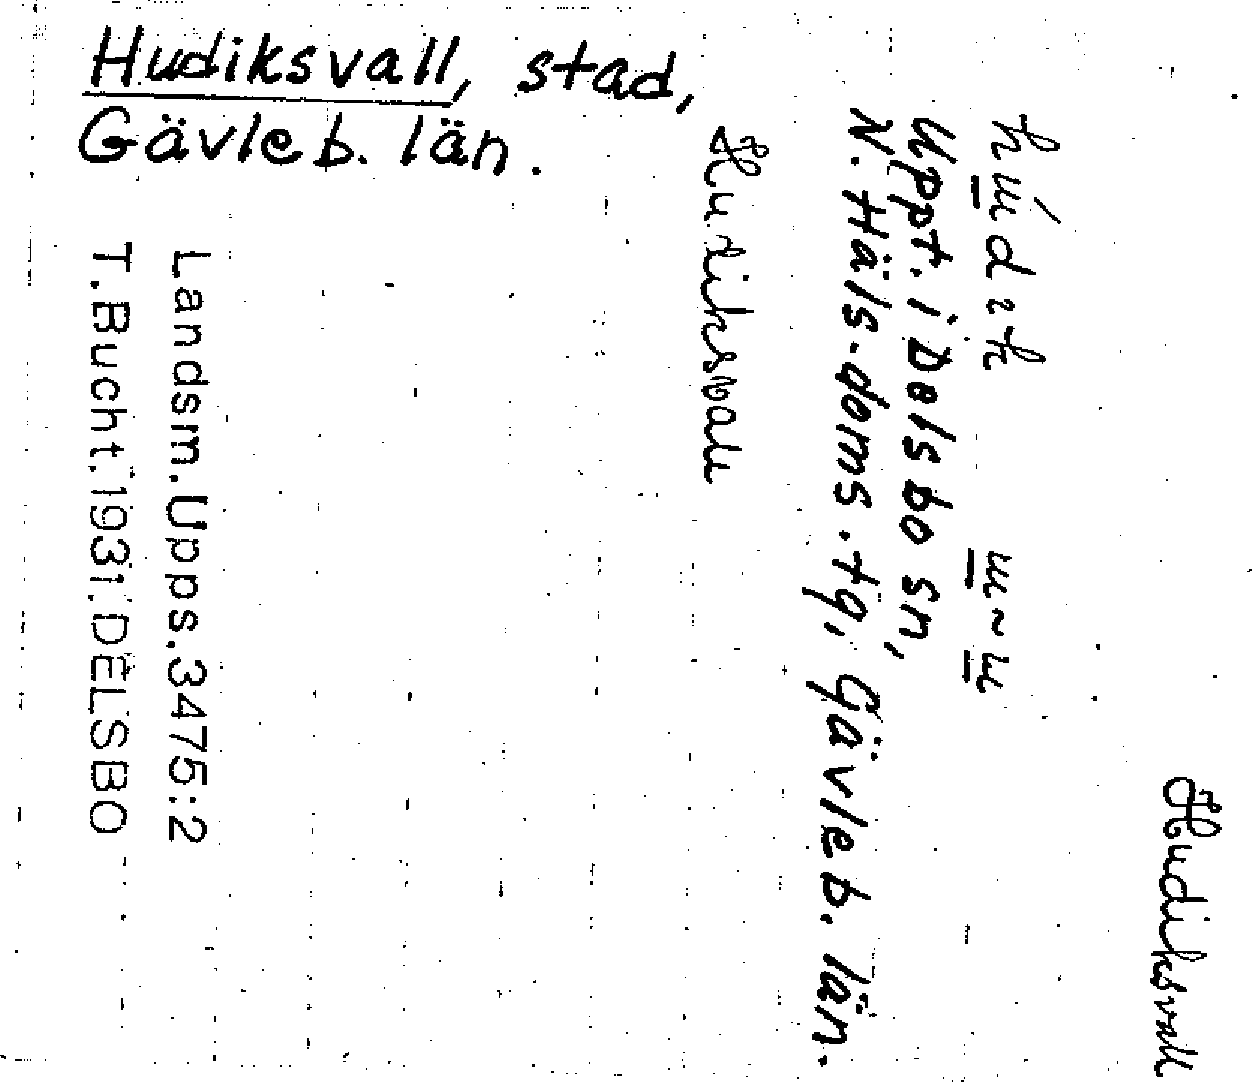 Hudiksvall, stad,
Gävleb. län.
Hudiksvall
Uppt. i Delsbo sn,
N. Häls. doms. tg, Gävleb. län.
Hudiksvall
Landsm. Upps. 3475:2
T. Bucht. 1931. DELSBO